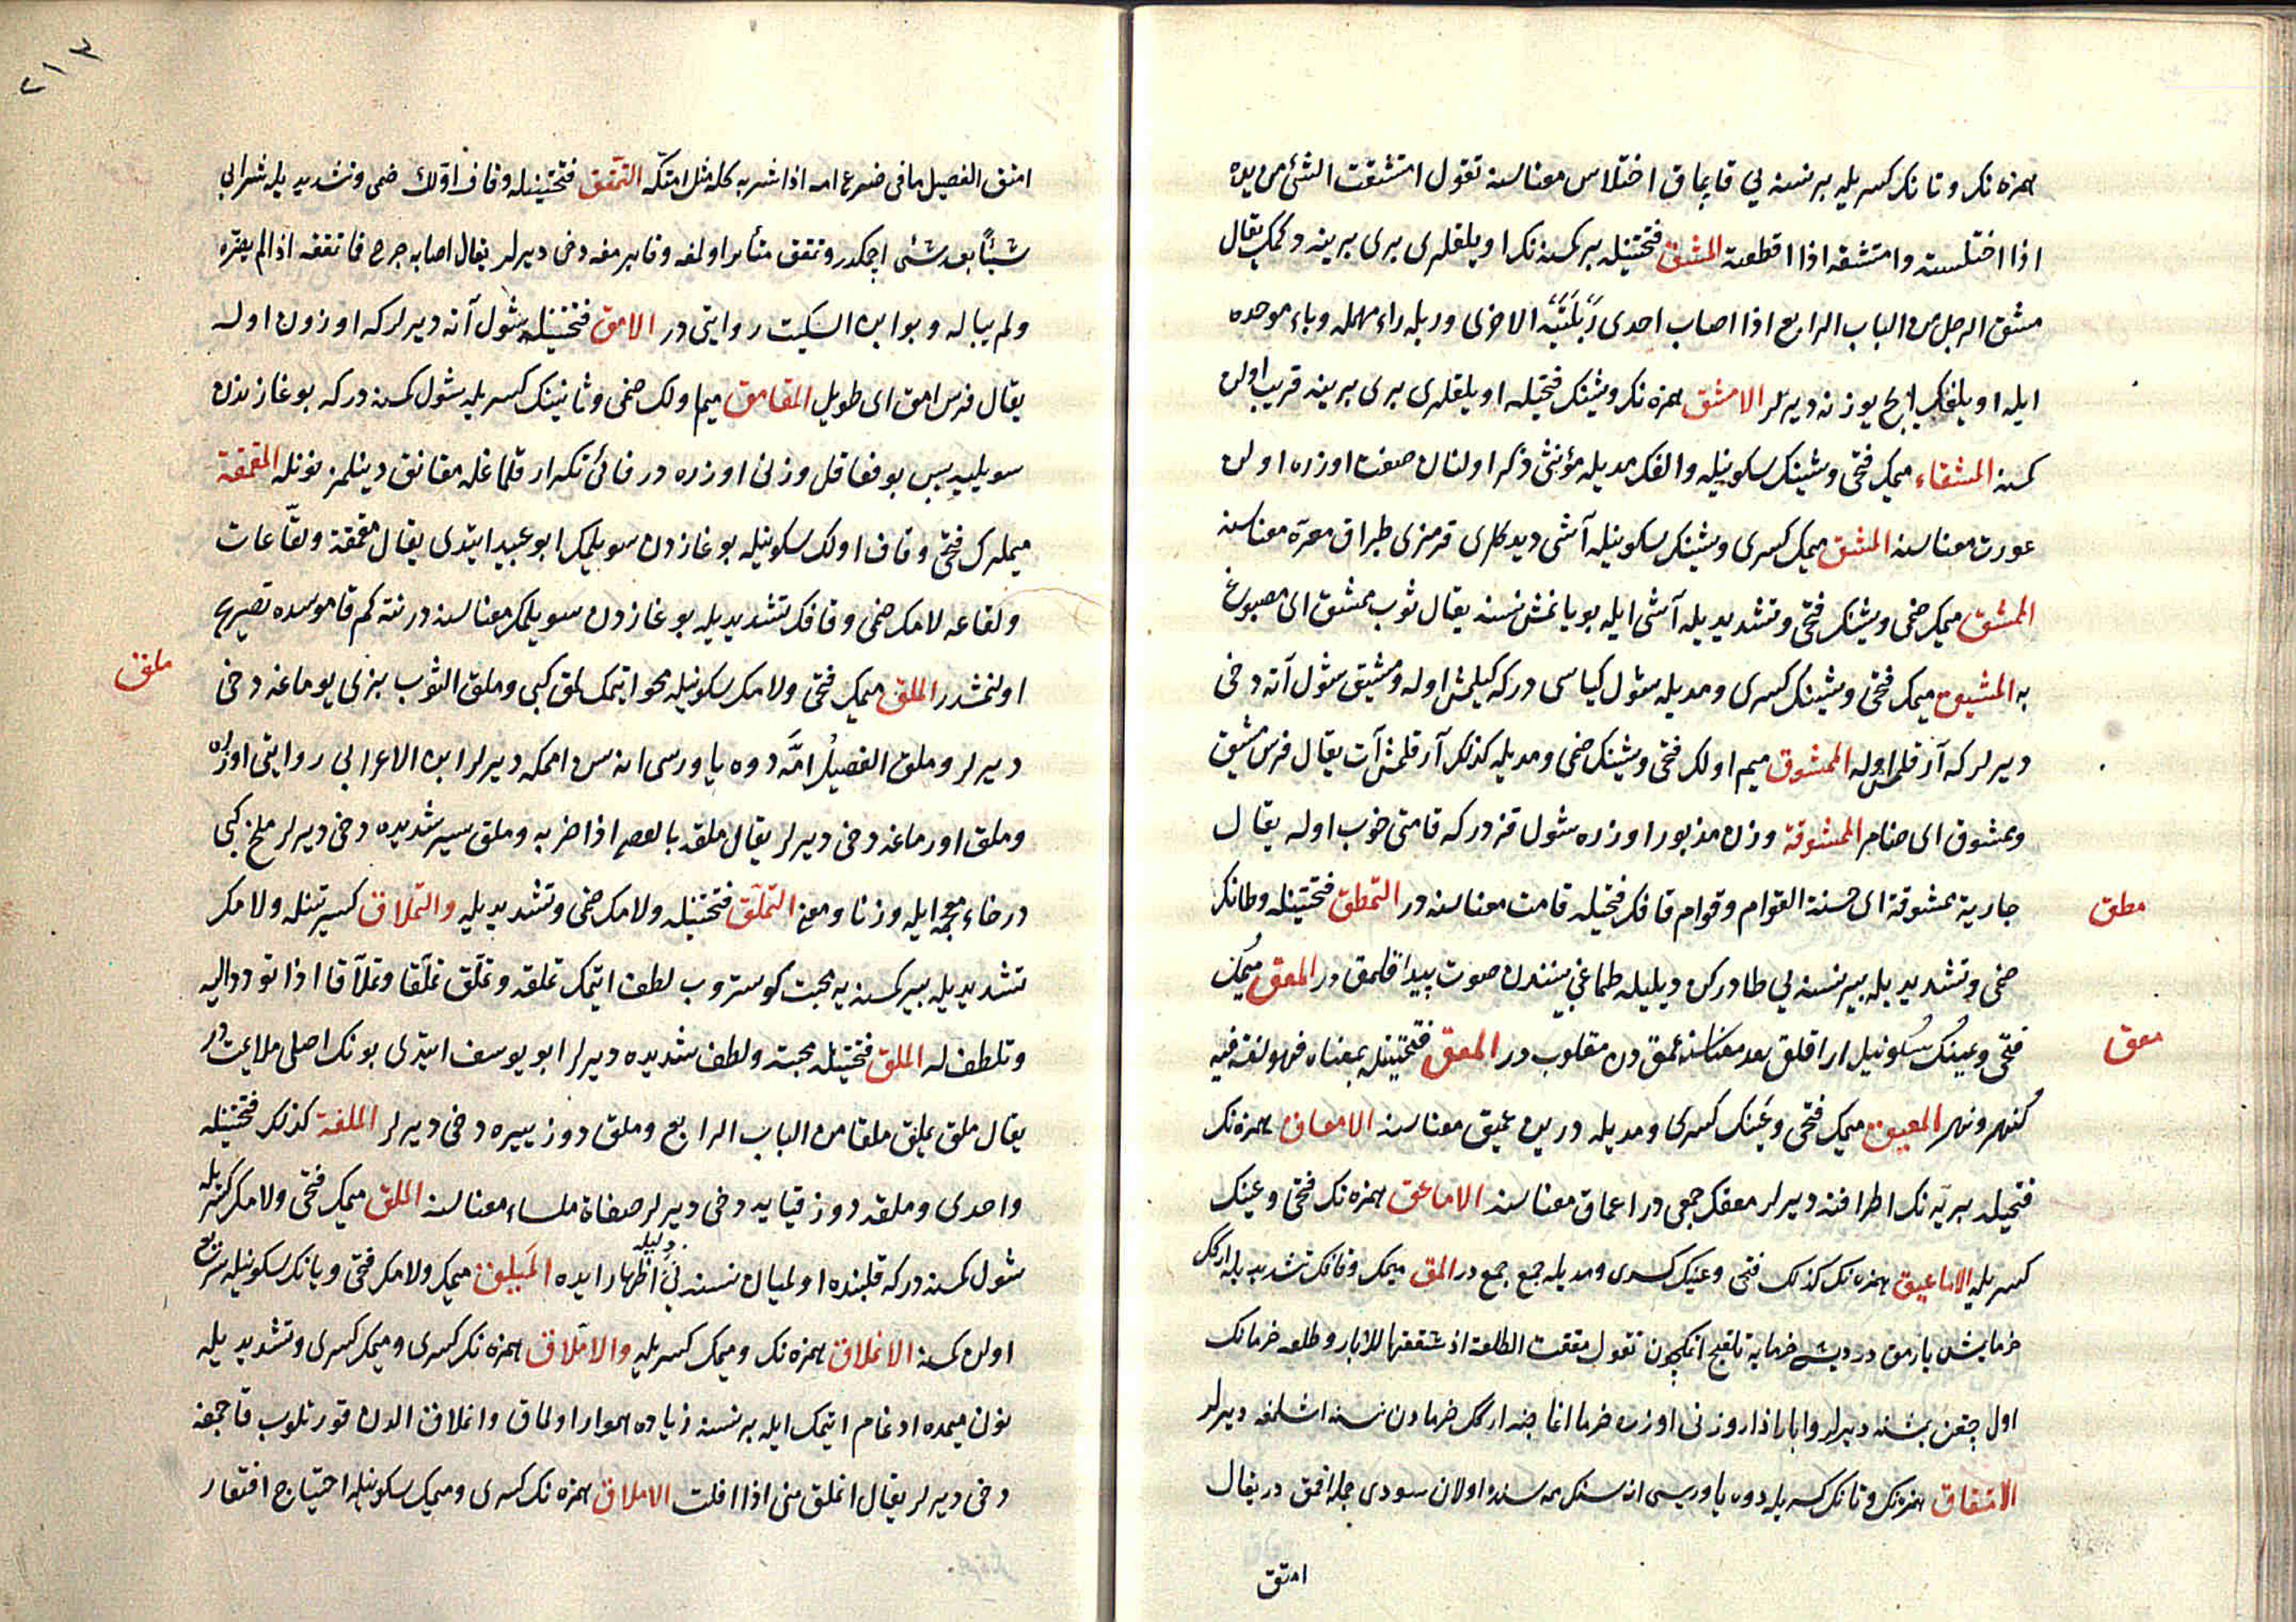 همزه نك و تانك كسريله بر نسنه يي قاپماق اختلاس معناسنه تقول امتشقت الشئ من يده
اذا اختلسته وامتشقه اذا اقطعته المشق فتحتينله بر كمسنه نك اويلقلرى برى برينه دكمك يقال
مشق الرجل من الباب الرابع اذا اصاب احدى ربلتيه الاخرى وربله راء مهمله وباء موحده
ايله اويلغك ايچ يوزنه ديرلر الامشق همزه نك وشينك فتحيله اويلقلرى برى برينه قريب اولن
كمسنه المشقاء ميمك فتحى وشينك سكونيله والفك مديله مؤنثى ذكر اولنان صفت اوزره اولن
عورت معناسنه المشق ميمك كسرى وشينك سكونيله آشى ديدكلرى قرمزى طپراق مغره معناسنه
الممشق ميمك ضمى وشينك فتحى وتشديديله آشى ايله بويانمش نسنه يقال ثوب ممشق اى مصبوغ
به المشيق ميمك فتحى وشينك كسرى ومديله شول كياسى در كه كيلمش اوله ومشيق شول آته دخى
ديرلر كه آرقلمش اوله الممشوق ميم اولك فتحى وشينك ضمى ومديله كذلك آرقلمش آت يقال فرس مشيق
وممشوق اى ضامر الممشوقة وزن مذبور اوزره شول قزدر كه قامتى خوب اوله يقال
مطق
جارية ممشوقة اى حسنة القوام وقوام قافك فتحيله قامت معناسنه در التمطق فتحتينله وطانك
ضمى وتشديديله بير نسنه يي طادركن ديليله طماغى بينندن صوت پيدا قلمق در المعق ميمك
معق
فتحى وعينك سكونيل ايراقلق بعد معناسنه عمق دن مقلوب در المعق فتحتينله بمعناه فهو لغة فيه
كنهر ونهر المعيق ميمك فتحى وعينك كسرى ومديله درين عميق معناسنه الامعاق همزه نك
فتحيله بريه نك اطرافنه ديرلر معقك جمعى در اعماق معناسنه الاماعق همزه نك فتحى وعينك
كسريله الاماعيق همزه نك كذلك فتحى وعينك كسرى ومديله جمع جمع در المق ميمك وقافك تشديديله اركك
خرما بشن يارمق در ديشى خرمايه تلقيح اتمكچون تقول مققت الطلعة اذا شققتها للابار وطلعه خرمانك
اول چقن بشنه ديرلر وابار ازار وزنى اوزره خرما اغاجنه اركك خرمادن نسنه اشلمغه ديرلر
الامتقاق همزه نك وتانك كسريله دوه ياوريسى اناسنك ممه سنده اولان سودى جمله امق در يقال
امتق
٢١٢
امتق الفصيل مافى ضرع امه اذا شربه كله مثل امتكه التمقق فتحتينله وقاف اولك ضمى وتشديديله شرابى
شيئا بعد شئ ايچمكدر وتمقق متأثر اولمغه وقايرمغه دخى ديرلر يقال اصابه جرح فما تمققه اذا لم يضره
ولم يباله وبو ابن السكيت روايتى در الامق فتحتينله شول آته ديرلر كه اوزون اوله
يقال فرس امق اى طويل المقامق ميم اولك ضمى وثانينك كسريله شول كمسنه در كه بوغازندن
سويليه پس بو فعافل وزنى اوزره در فائ تكرار قلماغله مقانق دينلمز نونله المقمقة
ميملرك فتحى وقاف اولك سكونيله بوغازدن سويلمك ابو عبيد ايتدى يقال مقمقة ولقاعات
ولقاعه لامك ضمى وقافك تشديديله بوغازدن سويلمك معناسنه در نته كم قاموسده تصريح
ملق
اولنمشدر الملق ميمك فتحى ولامك سكونيله محو ايتمك لمق كبى وملق الثوب بزى يوماغه دخى
ديرلر وملق الفصيل امه دوه ياورسى اناسن اممكه ديرلر ابن الاعرابى روايتى اوزره
وملق اورماغه دخى ديرلر يقال ملقه بالعصا اذا ضربه وملق سير شديده دخى ديرلر ملخ كبى
در خاء معجمه ايله وزنا ومعنى التملق فتحتينله ولامك ضمى وتشديديله والتملاق كسرتينله ولامك
تشديديله بير كمسنه يه محبت كوستروب لطف ايتمك تملقه وتملق تملقا وتملاقا اذا تودد اليه
وتلطف له الملق فتحتينله محبته ولطف شديده ديرلر ابو يوسف ايتدى بونك اصلى ملايمت در
يقال ملق يملق ملقا من الباب الرابع وملق دوز ييره دخى ديرلر الملقة كذلك فتحتينله
واحدى وملقه دوز قيايه دخى ديرلر صفاة ملساء معناسنه الملق ميمك فتحى ولامك كسريله
شول كمسنه در كه قلبنده اولميان نسنه يى ديليله اظهار ايده الميلق ميمك ولامك فتحى ويانك سكونيله سريع
اولن كمسنه الانملاق همزه نك وميمك كسريله والاملاق همزه نك كسرى وميمك كسرى وتشديديله
نون ميمده ادغام ايتمك ايله بر نسنه زياده هموار اولماق وانملاق الدن قورتلوب قاچمغه
دخى ديرلر يقال انملق منى اذا افلت الاملاق همزه نك كسرى وميمك سكونيله احتياج افتقار